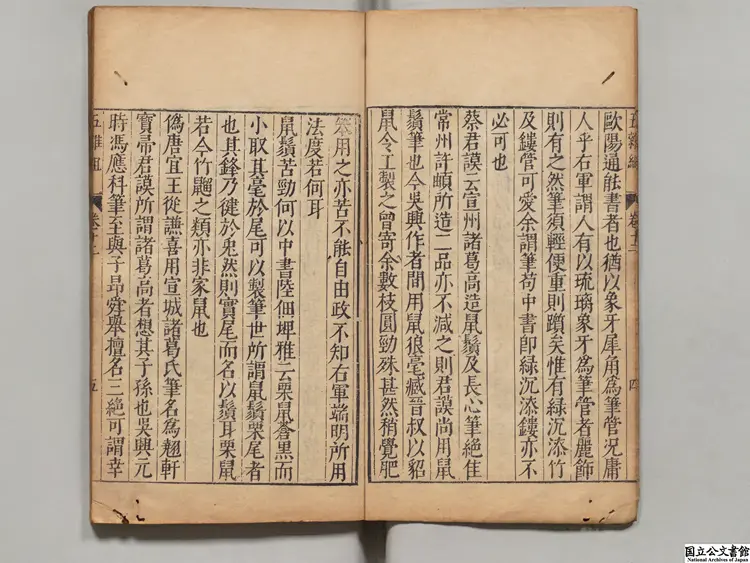 歐陽通能書者也猶以象牙犀角為筆管况庸
人乎右軍謂人有以琉璃象牙為筆管者麗飾
則有之然筆須輕便重則躓矣惟有綠沉漆竹
及鏤管可愛余謂筆苟中書卽綠沉漆鏤亦不
必可也
蔡君謨云宣州諸葛高造鼠鬚及長心筆絕佳
常州許頔所造二品亦不減之則君謨尚用鼠
鬚筆也今吳興作者間用鼠狼毫臧晉叔以貂
鼠令工製之曾寄余數枝圓勁殊甚然稍覺肥
五雜組
卷十二
四
笨用之亦苦不能自由政不知右軍端明所用
法度若何耳
鼠鬚苦勁何以中書陸佃埤雅云栗鼠蒼黑而
小取其毫於尾可以製筆世所謂鼠鬚栗尾者
也其鋒乃健於兎然則實尾而名以鬚耳栗鼠
若今竹䶉之類亦非家鼠也
偽唐宜王從謙喜用宣城諸葛氏筆名為翹軒
寶帚君謨所謂諸葛高者想其子孫也吳興元
時馮應科筆至與子昂舜舉擅名三絕可謂幸
五雜組
卷十二
五
国立公文書館
National Archives of Japan